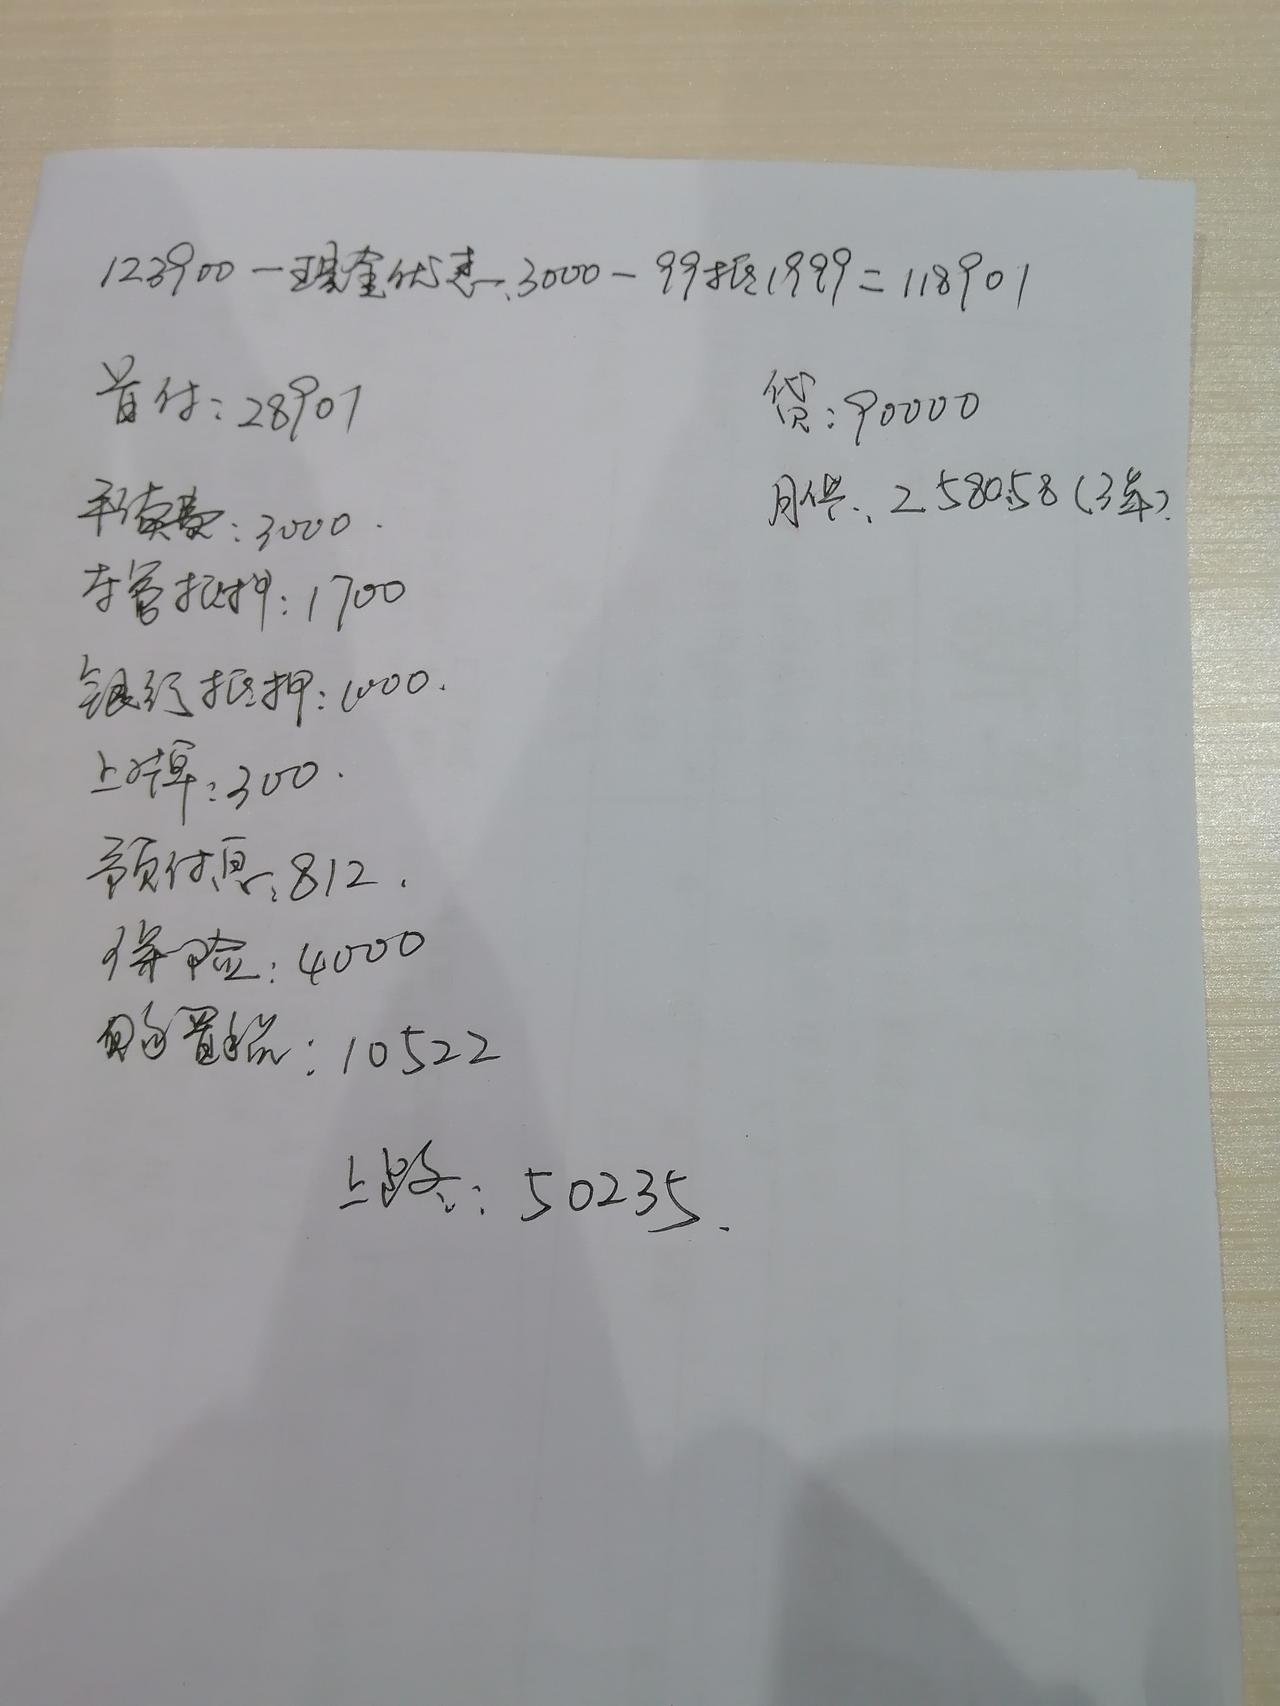 123900-现金优惠:3000-99抵1999=118901
首付:28901
贷:90000
手续费:3000.
月供:2580.58(3年).
车管抵押:1700
银行抵押:1000.
上牌:300.
预付息:812.
保险:4000
购置税:10522
上路:50235.